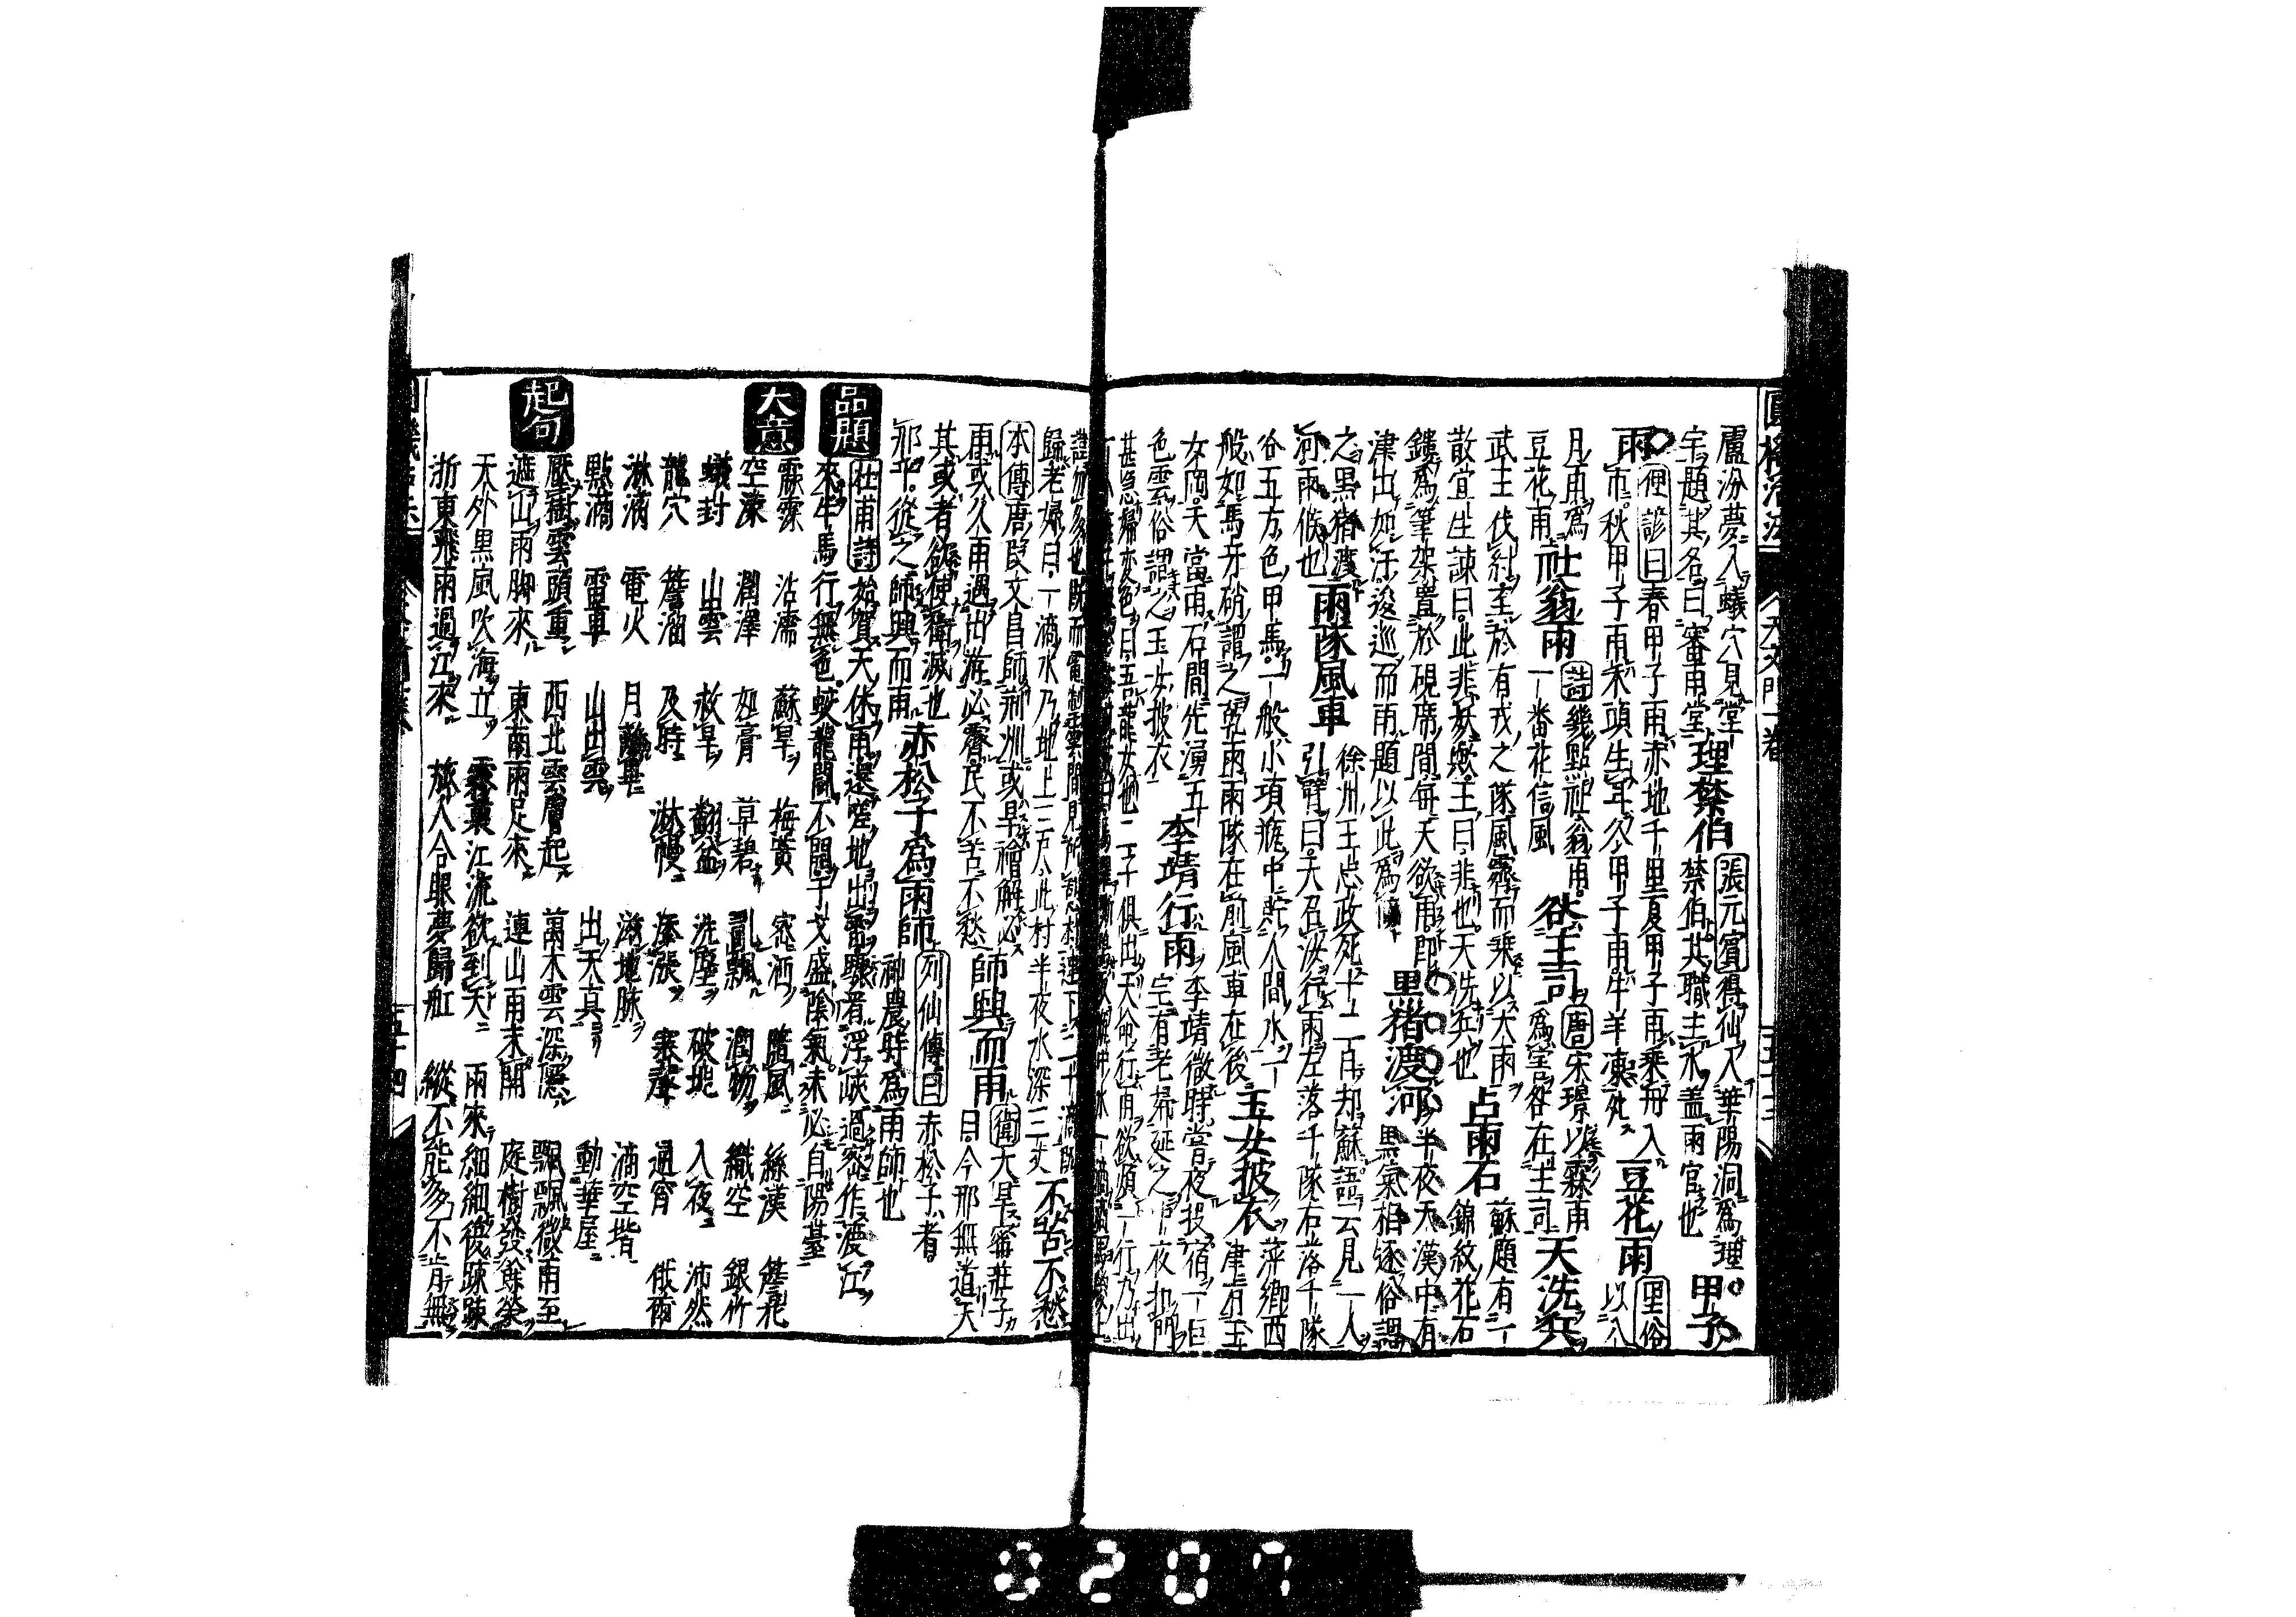 盧汾夢入蟻穴見堂
宇題其名曰審雨堂 理禁伯 張元賓得仙入華陽洞爲理
禁伯其職主水盖雨官也 甲子
雨 俚諺曰春甲子雨赤地千里夏甲子雨乘舟入
市秋甲子雨禾頭生耳冬甲子雨牛羊凍死 豆花雨 里俗
以八
月雨爲
豆花雨 社翁雨 詩幾點社翁雨
一番花信風 欲王司 唐宋璟以霖雨
爲害咎在主司 天洗兵
武王伐紂至於有戎之隊風霽而乘以大雨
散宜生諫曰此非妖歟王曰非也天洗兵也 占雨石 蘇題有一
錦紋花石
鏤爲筆架置於硯席間每天欲雨即
津出如汗逡巡而雨題以此爲 黑猪渡河 半夜天漢中有
黑氣相逐俗謂
之黑猪渡
河雨候也 雨隊風車 徐州王忠政死十二日却蘇語云見一人
引臂曰天召汝行雨左落千隊右落千隊
各五方色甲馬一般小項瓶中貯人間水一
般如馬牙硝謂之乾雨雨隊在前風車在後 玉女披衣 萍鄉西
津有玉
女岡天當雨石間先湧五
色雲俗謂之玉女披衣 李靖行雨 李靖微時嘗夜投宿一巨
宅有老婦延之中夜扣門
甚急婦變色曰吾龍女也二子俱出天命行雨欲煩一行乃出
歸老婦曰一滴水乃地上三尺此村半夜水深三丈 不苦不愁
本傳唐段文昌師荊州或旱禬解必
雨或久雨遇出游必霽民不苦不愁 師興而雨 衛大旱甯莊子
曰今邢無道天
其或者欲使衛滅
邢乎從之師興而雨 赤松子爲雨師 列仙傳曰赤松子者
神農時爲雨師也
品題 杜甫詩 始賀天休雨還嗟地出雷驟看浮峽過密作渡江
來牛馬行無色蛟龍鬬不開干戈盛陰氣未必自陽臺
大意 霡霂 沾濡 蘇旱 梅黃 密洒 隨風 絲漢 簷花
空濛 潤澤 如膏 草碧 亂飄 潤物 織空 銀竹
蟻封 山雲 救旱 翻盆 洗塵 破塊 入夜 沛然
龍穴 簷溜 及時 淋幔 添漲 寒聲 通宵 俄而
淋漓 電火 月離畢 滋地脉 滴空堦
點滴 雷車 山出雲 出天真 動華屋
起句 壓樹雲頭重 西北雲層起 萬木雲深隱 飄飄微雨至
遮山雨脚來 東南雨足來 連山雨未開 庭樹發餘榮
天外黑風吹海立 霧裹江流欲到天 雨來細細復疎疎
浙東飛雨過江來 旅人合眼夢歸舡 縱不能多不肯無
0207